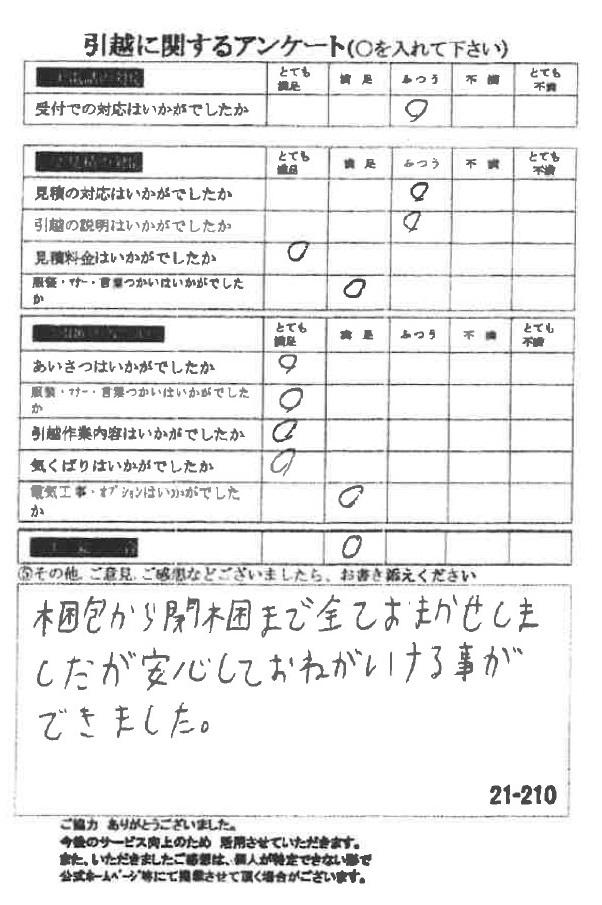 引越に関するアンケート(○を入れて下さい)
とても満足 満足 ふつう 不満 とても不満
受付での対応はいかがでしたか
とても満足 満足 ふつう 不満 とても不満
見積の対応はいかがでしたか
引越の説明はいかがでしたか
見積料金はいかがでしたか
服装・マナー・言葉つかいはいかがでしたか
とても満足 満足 ふつう 不満 とても不満
あいさつはいかがでしたか
服装・マナー・言葉つかいはいかがでしたか
引越作業内容はいかがでしたか
気くばりはいかがでしたか
電気工事・オプションはいかがでしたか
⑤その他、ご意見、ご感想などございましたら、お書き添えください
梱包から開梱まで全ておまかせしま
したが安心しておねがいける事が
できました。
21-210
ご協力 ありがとうございました。
今後のサービス向上のため 活用させていただきます。
また、いただきましたご感想は、個人が特定できない形で
公式ホームページ等にて掲載させて頂く場合がございます。